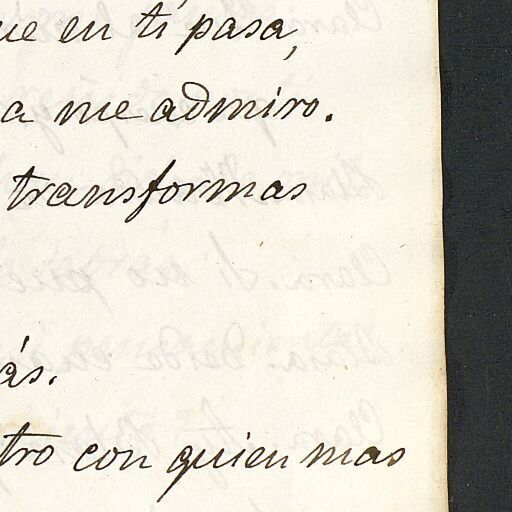 ue en ti pasa,
a me admiro.
transformas
ás.
tro con quien mas